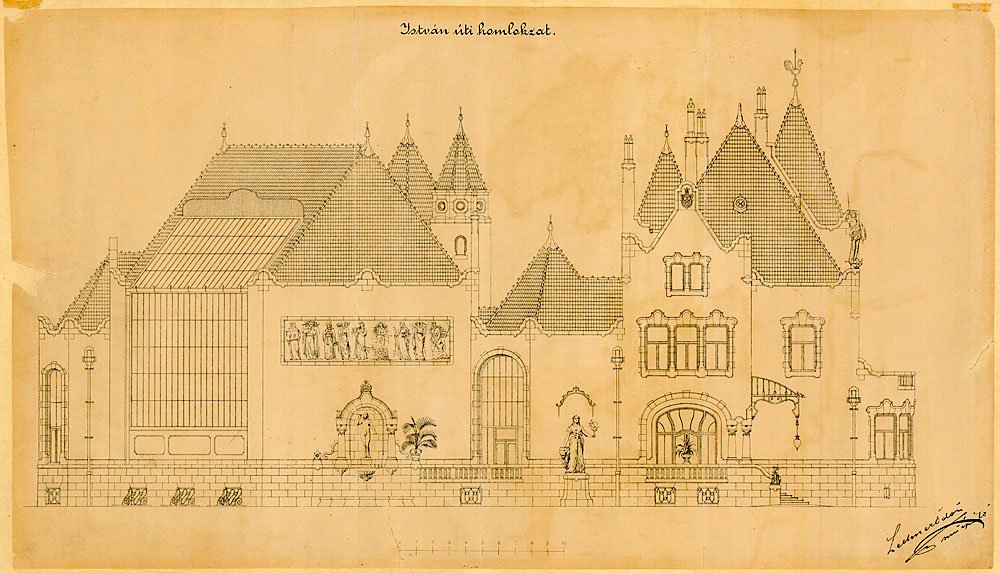 István úti homlokzat.
Lechner Ödön